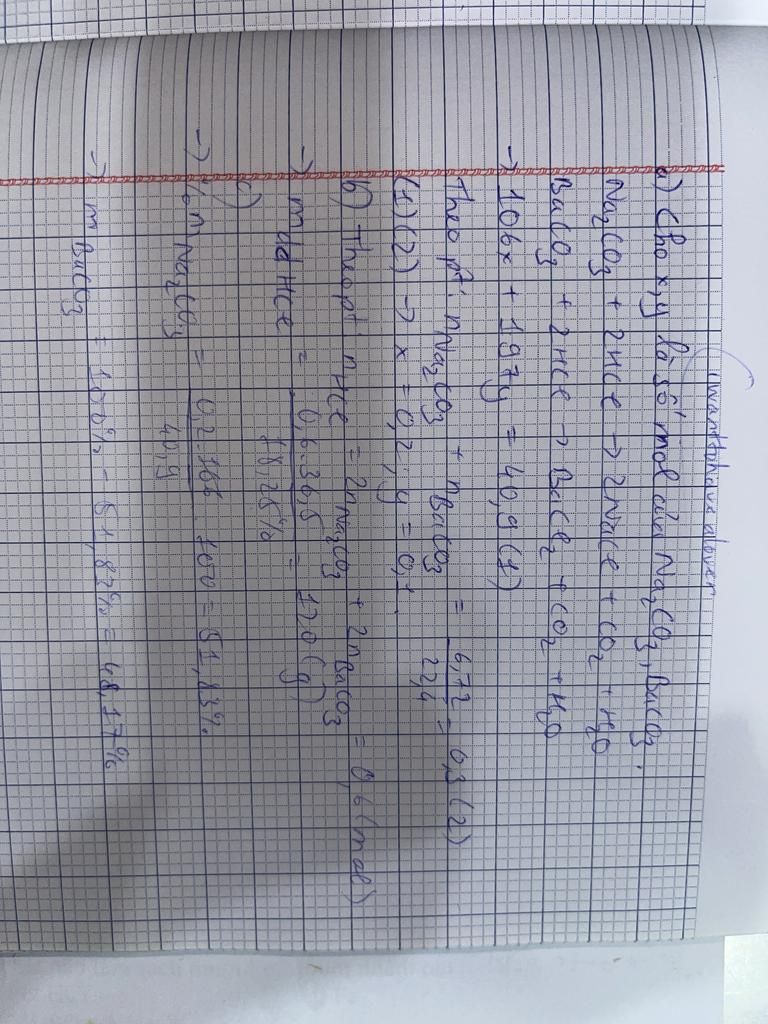 i want to have a lover
a) Cho x, y là số mol của Na2CO3, BaCO3.
Na2CO3 + 2HCl → 2NaCl + CO2 + H2O
BaCO3 + 2HCl → BaCl2 + CO2 + H2O
→ 106x + 197y = 40,9 (1)
Theo pt: nNa2CO3 + nBaCO3 = 6,72 / 22,4 = 0,3 (2)
(1)(2) → x = 0,2; y = 0,1
b) Theo pt: nHCl = 2nNa2CO3 + 2nBaCO3 = 0,6 (mol)
→ mddHCl = 0,6.36,5 / 18,25% = 120 (g)
c)
→ %mNa2CO3 = 0,2.106 / 40,9 . 100 = 51,83%
→ mBaCO3 = 100% - 51,83% = 48,17%